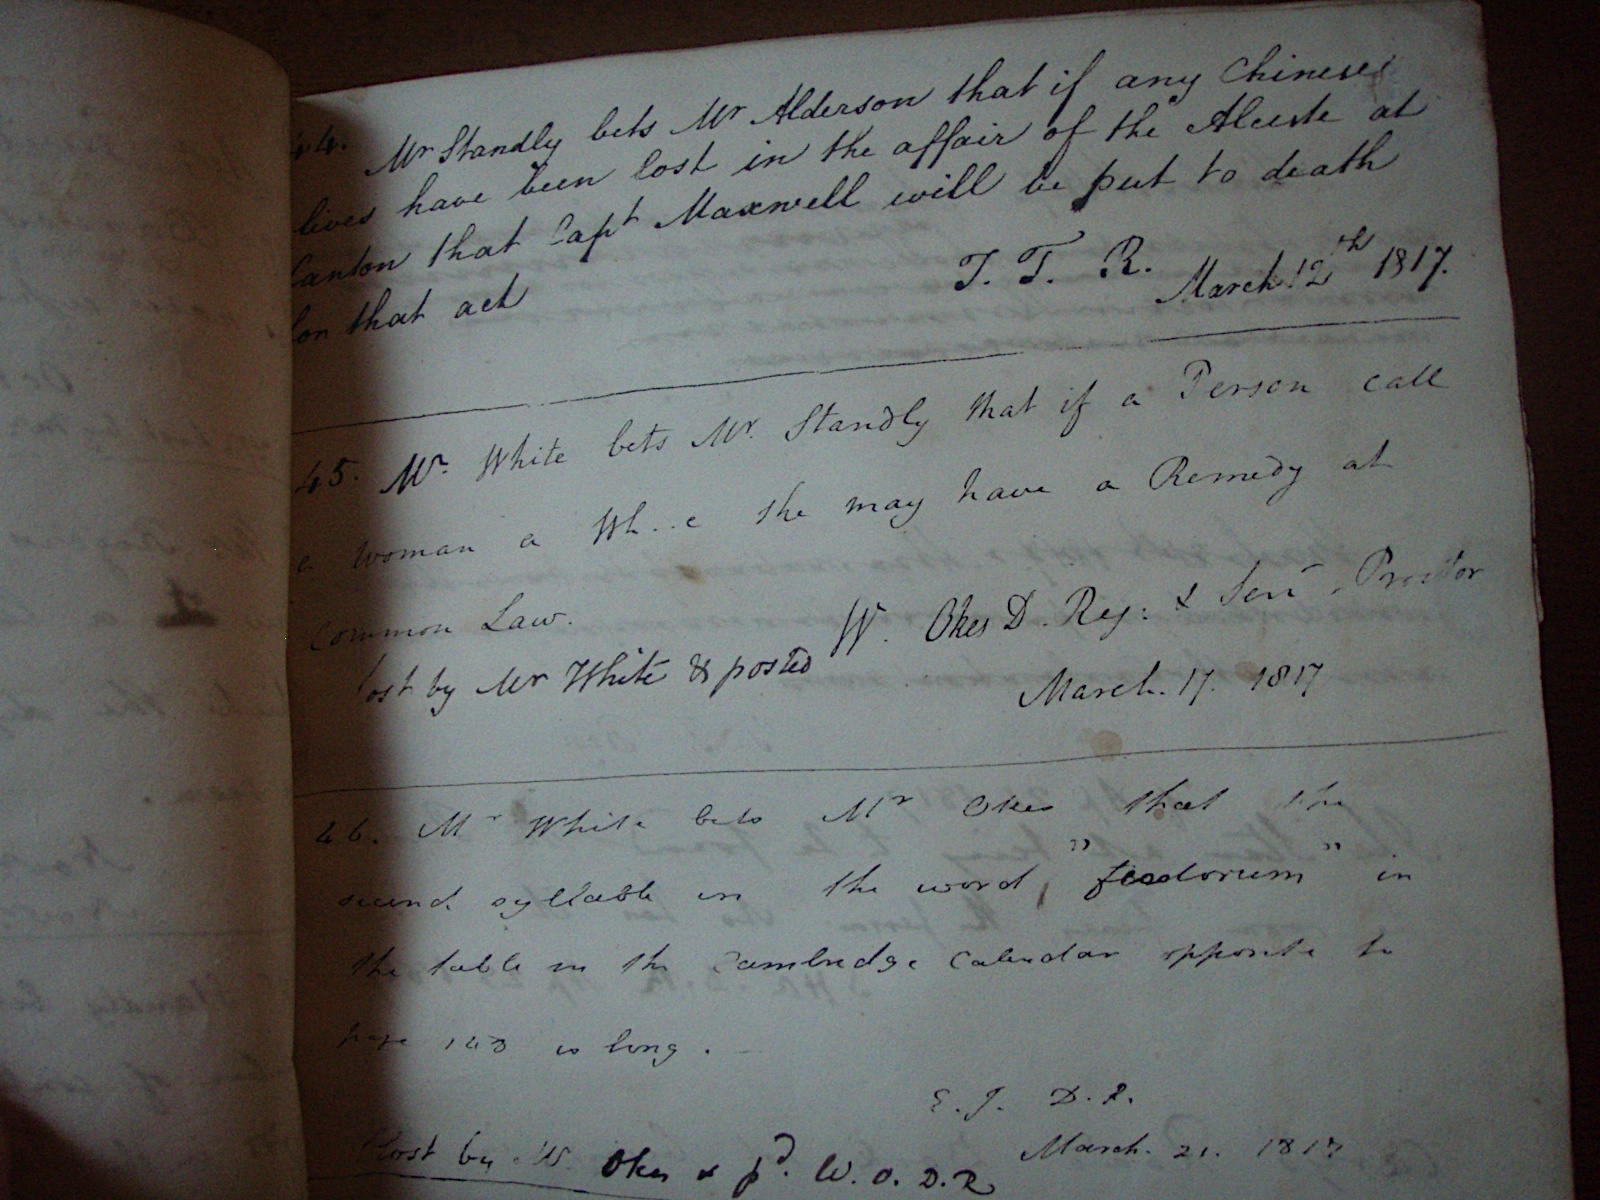 44. Mr Standly bets Mr Alderson that if any Chinese
lives have been lost in the affair of the Alceste at
Canton that Capt Maxwell will be put to death
for that act
T. T. R. March 12th 1817.
45. Mr. White bets Mr. Standly that if a Person call
a woman a Wh..e she may have a Remedy at
Common Law.
W. Okes D. Reg: & Senr. Proctor
lost by Mr White & posted
March. 17. 1817
46. Mr White bets Mr Okes that the
second syllable in the word "feodorum" in
the table in the Cambridge Calendar opposite to
page 143 is long.
E. J. D.R.
March. 21. 1817
lost by Mr. Okes & pd. W. O. D. R